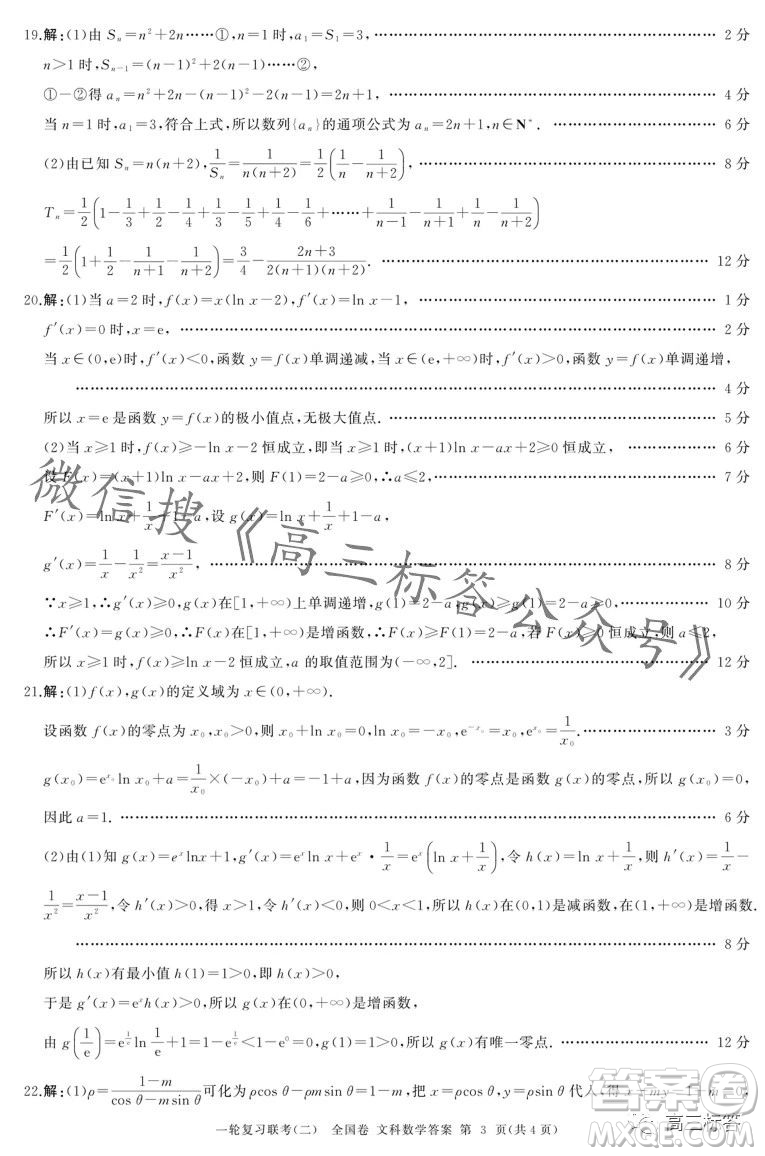 19.解:(1)由 Sₙ=n²+2n……①,n=1 时,a₁=S₁=3, …… 2 分
n>1 时,Sₙ₋₁=(n-1)²+2(n-1)……②,
①-②得 aₙ=n²+2n-(n-1)²-2(n-1)=2n+1, …… 4 分
当 n=1 时,a₁=3,符合上式,所以数列{aₙ}的通项公式为 aₙ=2n+1,n∈N*. …… 6 分
(2)由已知 Sₙ=n(n+2),1/Sₙ=1/(n(n+2))=1/2(1/n-1/(n+2)), …… 8 分
Tₙ=1/2(1-1/3+1/2-1/4+1/3-1/5+1/4-1/6+……+1/(n-1)-1/(n+1)+1/n-1/(n+2))
=1/2(1+1/2-1/(n+1)-1/(n+2))=3/4-(2n+3)/(2(n+1)(n+2)). …… 12 分
20.解:(1)当 a=2 时,f(x)=x(ln x-2),f′(x)=ln x-1, …… 1 分
f′(x)=0 时,x=e, …… 2 分
当 x∈(0,e)时,f′(x)<0,函数 y=f(x)单调递减,当 x∈(e,+∞)时,f′(x)>0,函数 y=f(x)单调递增,
…… 4 分
所以 x=e 是函数 y=f(x)的极小值点,无极大值点. …… 5 分
(2)当 x≥1 时,f(x)≥-ln x-2 恒成立,即当 x≥1 时,(x+1)ln x-ax+2≥0 恒成立, …… 6 分
设 F(x)=(x+1)ln x-ax+2,则 F(1)=2-a≥0,∴a≤2, …… 7 分
F′(x)=ln x+1/x+1-a,设 g(x)=ln x+1/x+1-a,
g′(x)=1/x-1/x²=(x-1)/x², …… 8 分
∵x≥1,∴g′(x)≥0,g(x)在[1,+∞)上单调递增,g(1)=2-a,g(x)≥g(1)=2-a≥0, …… 10 分
∴F′(x)=g(x)≥0,∴F(x)在[1,+∞)是增函数,F(x)≥F(1)=2-a,若 F(x)≥0恒成立,则 a≤2,
所以 x≥1 时,f(x)≥-ln x-2 恒成立,a 的取值范围为(-∞,2]. …… 12 分
21.解:(1)f(x),g(x)的定义域为 x∈(0,+∞).
设函数 f(x)的零点为 x₀,x₀>0,则 x₀+ln x₀=0,ln x₀=-x₀,e^(-x₀)=x₀,e^(x₀)=1/x₀. …… 3 分
g(x₀)=e^(x₀)ln x₀+a=1/x₀×(-x₀)+a=-1+a,因为函数 f(x)的零点是函数 g(x)的零点,所以 g(x₀)=0,
因此 a=1. …… 6 分
(2)由(1)知 g(x)=eˣlnx+1,g′(x)=eˣln x+eˣ·1/x=eˣ(ln x+1/x),令 h(x)=ln x+1/x,则 h′(x)=1/x-
1/x²=(x-1)/x²,令 h′(x)>0,得 x>1,令 h′(x)<0,则 0<x<1,所以 h(x)在(0,1)是减函数,在(1,+∞)是增函数.
…… 8 分
所以 h(x)有最小值 h(1)=1>0,即 h(x)>0,
于是 g′(x)=eˣh(x)>0,所以 g(x)在(0,+∞)是增函数,
由 g(1/e)=e^(1/e)ln 1/e+1=1-e^(1/e)<1-e⁰=0,g(1)>0,所以 g(x)有唯一零点. …… 12 分
22.解:(1)ρ=(1-m)/(cos θ-msin θ)可化为 ρcos θ-ρmsin θ=1-m,把 x=ρcos θ,y=ρsin θ代入,得 x=my-1-m=0,
一轮复习联考(二) 全国卷 文科数学答案 第 3 页(共 4 页)
微信搜《高三标答公众号》
答案圈
高三标答